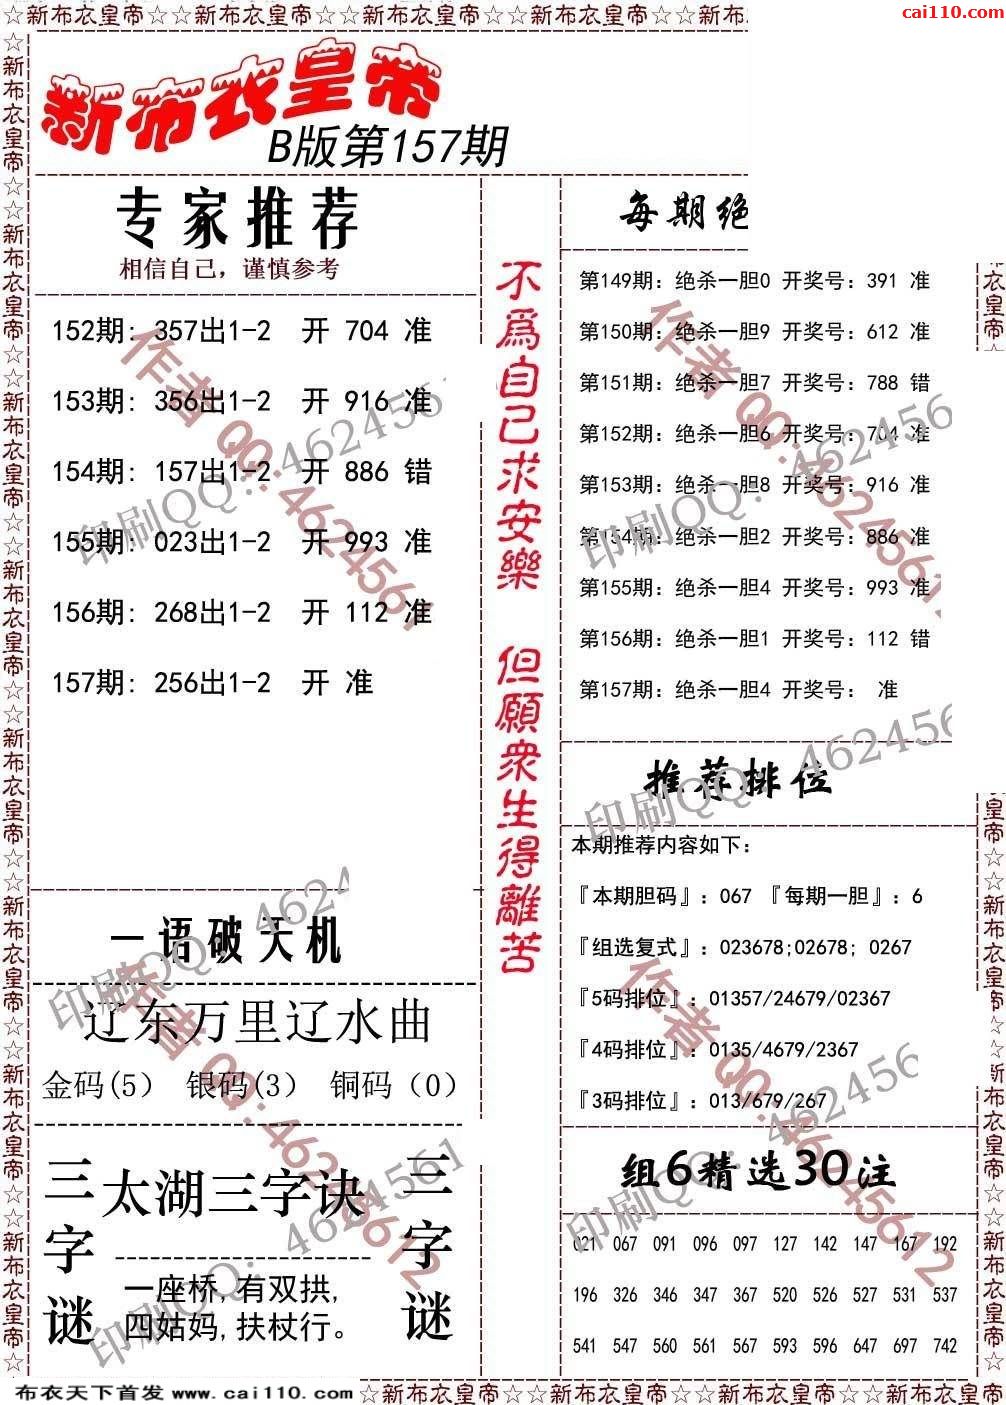 ☆新布衣皇帝☆☆新布衣皇帝☆☆新布衣皇帝☆☆新布衣皇帝☆☆新布
cai110.com
新布衣皇帝
B版第157期
专家推荐
相信自己，谨慎参考
152期: 357出1-2 开 704 准
153期: 356出1-2 开 916 准
154期: 157出1-2 开 886 错
155期: 023出1-2 开 993 准
156期: 268出1-2 开 112 准
157期: 256出1-2 开 准
不爲自己求安樂 但願衆生得離苦
每期绝
第149期: 绝杀一胆0 开奖号: 391 准
第150期: 绝杀一胆9 开奖号: 612 准
第151期: 绝杀一胆7 开奖号: 788 错
第152期: 绝杀一胆6 开奖号: 704 准
第153期: 绝杀一胆8 开奖号: 916 准
第154期: 绝杀一胆2 开奖号: 886 准
第155期: 绝杀一胆4 开奖号: 993 准
第156期: 绝杀一胆1 开奖号: 112 错
第157期: 绝杀一胆4 开奖号: 准
推荐排位
本期推荐内容如下:
『本期胆码』: 067 『每期一胆』: 6
『组选复式』: 023678;02678; 0267
『5码排位』: 01357/24679/02367
『4码排位』: 0135/4679/2367
『3码排位』: 013/679/267
一语破天机
辽东万里辽水曲
金码(5) 银码(3) 铜码（0）
三字谜
太湖三字诀
一座桥,有双拱,
四姑妈,扶杖行。
三字谜
组6精选30注
021 067 091 096 097 127 142 147 167 192
196 326 346 347 367 520 526 527 531 537
541 547 560 561 567 593 596 647 697 742
作者 QQ:46245612
印刷QQ: 462456
布衣天下首发 www.cai110.com
☆新布衣皇帝☆☆新布衣皇帝☆☆新布衣皇帝☆☆新布衣皇帝☆